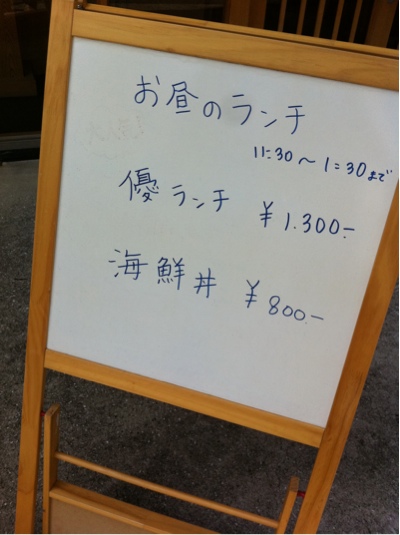 お昼のランチ
11:30〜1:30まで
優ランチ ¥1.300-
海鮮丼 ¥800-